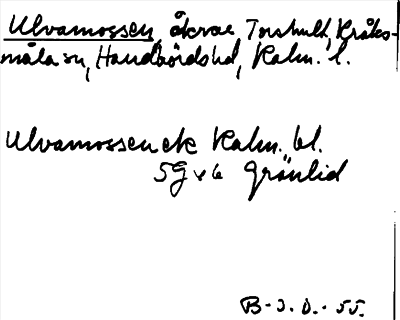 Ulvamossen, åkrar Torshult, Kråks-
måla sn, Handbörds hd, Kalm. l.
Ulvamossen ek Kalm. bl.
5G v 6 Grönlid
B-J. D. - 55.